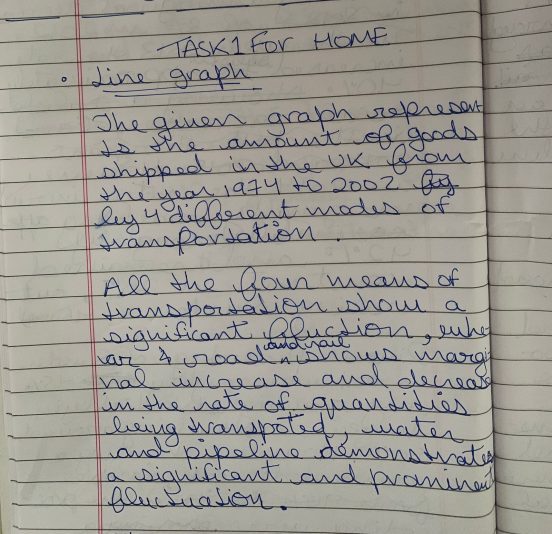 TASK 1 FOR HOME
Line graph
The given graph represent
ts the amount of goods
shipped in the UK from
the year 1974 to 2002 by
by 4 different modes of
transportation.
All the four means of
transportation show a
significant fluction, whe
road and rail shows margi
nal increase and decrease
in the rate of quantities
being transpoted, water
and pipeline demonstrates
a significant and prominent
fluctuation.